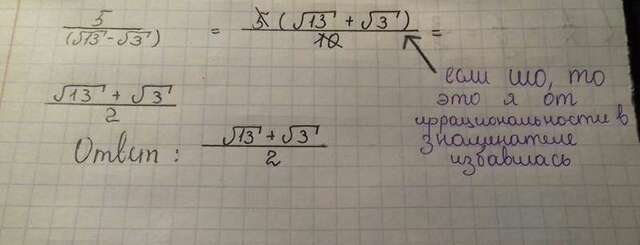 5/(√13 - √3) = 5(√13 + √3)/10 =
(√13 + √3)/2
Ответ: (√13 + √3)/2
если шо, то
это я от
иррациональности в
знаминателе
избавилась